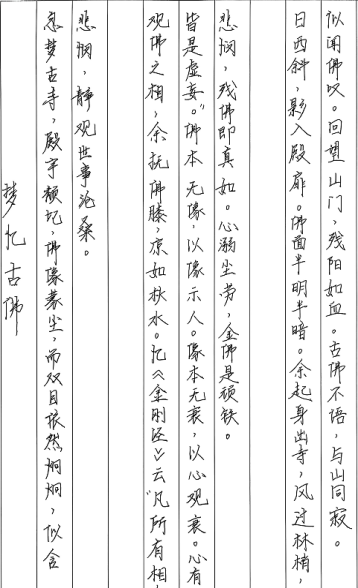 梦忆古佛
忽梦古寺，殿宇颓圮，佛像蒙尘，而双目依然炯炯，似含
悲悯，静观世事沧桑。
观佛之相，余抚佛膝，凉如秋水。忆《金刚经》云“凡所有相，
皆是虚妄。”佛本无像，以像示人。像本无衰，以心观衰。心有
悲悯，残佛即真如。心溺尘劳，金佛是顽铁。
日西斜，影入殿扉。佛面半明半暗。余起身出寺，风过林梢，
似闻佛叹。回望山门，残阳如血。古佛不语，与山同寂。